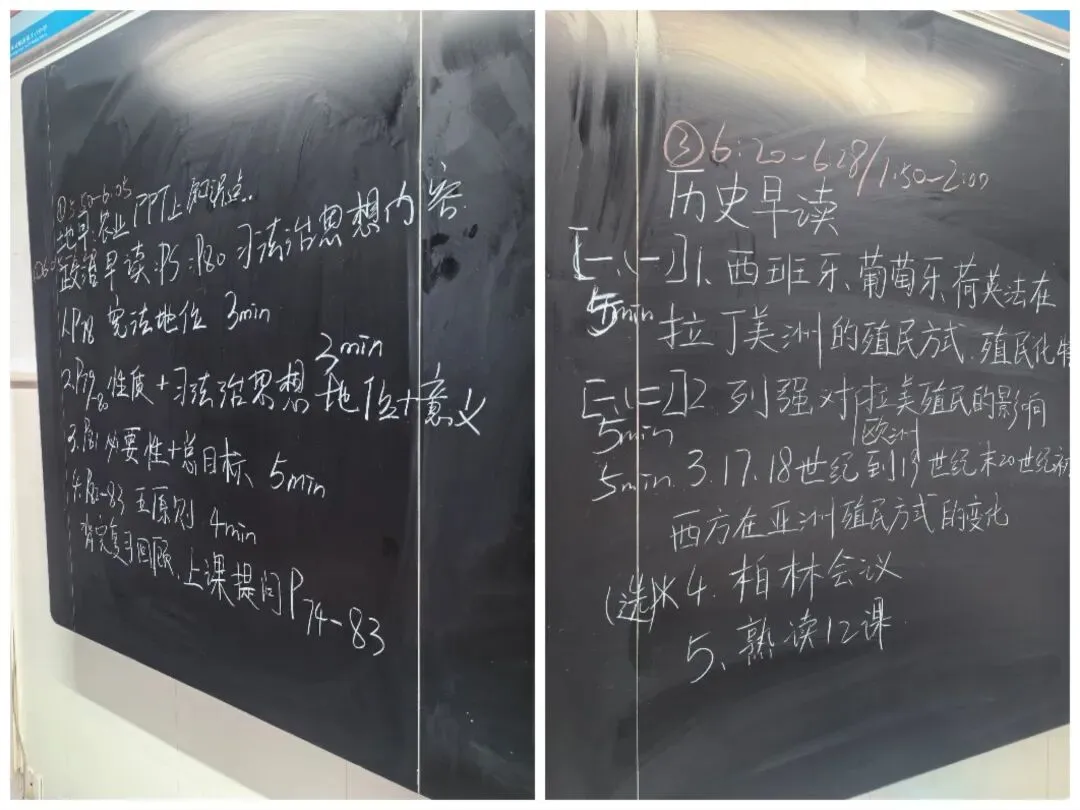 ①5:50-6:05
地早:农业PPT上知识点.
政治早读:P5:P80 习法治思想内容
1.P78 宪法地位 3min
3min
2.P79-80 性质+习法治思想地位+意义
3.P81 必要性+总目标、5min
4.P82-83 五原则 4min
背完复习回顾、上课提问P74-83
③6:20-6:28/1:50-2:00
历史早读
[一、(一)]1、西班牙、葡萄牙、荷英法在
5min 拉丁美洲的殖民方式、殖民化特
[一、(二)]2、列强对拉美殖民的影响
5min 欧洲
5min、3.17、18世纪到19世纪末20世纪初
西方在亚洲殖民方式的变化
(选)※4、柏林会议
5、熟读12课